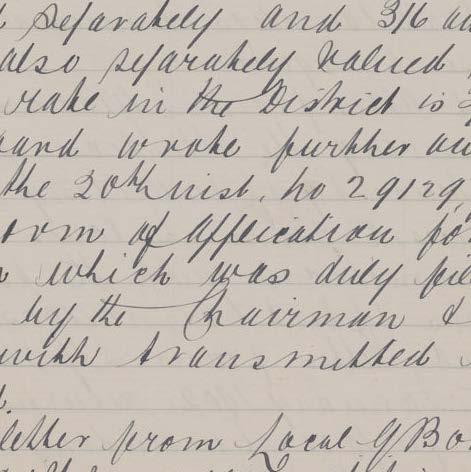 separately and 316 a
also separately valued
rate in the District is
oard wrote further au
the 20th inst, no 29129
orm of Application fo
which was duly
by the Chairman &
with transmitted
letter from Local G Bo